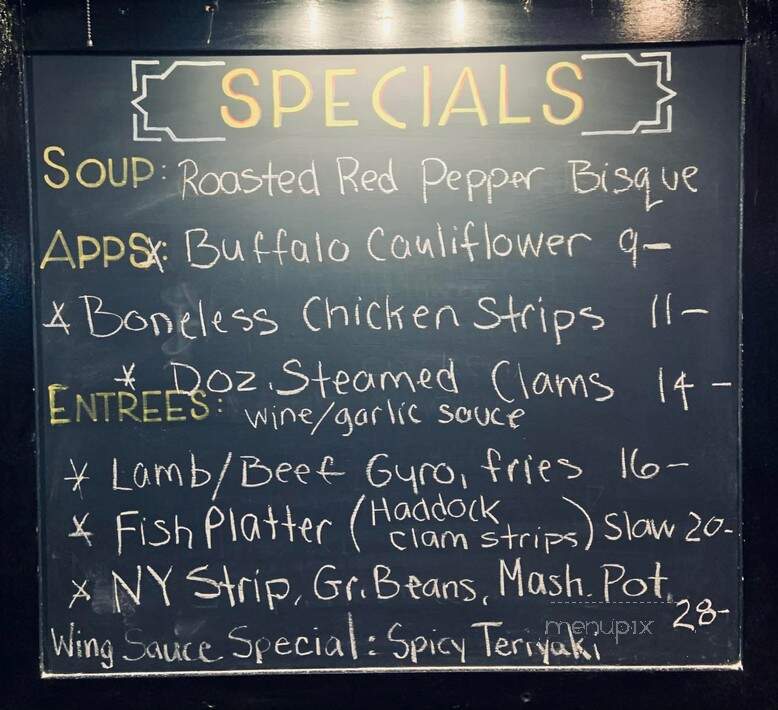 SPECIALS
SOUP: Roasted Red Pepper Bisque
APPS: * Buffalo Cauliflower 9-
* Boneless Chicken Strips 11-
* Doz. Steamed Clams 14-
wine/garlic sauce
ENTREES:
* Lamb/Beef Gyro, fries 16-
* Fish Platter (Haddock clam strips) Slaw 20-
* NY Strip, Gr. Beans, Mash. Pot. 28-
menupix
Wing Sauce Special: Spicy Teriyaki